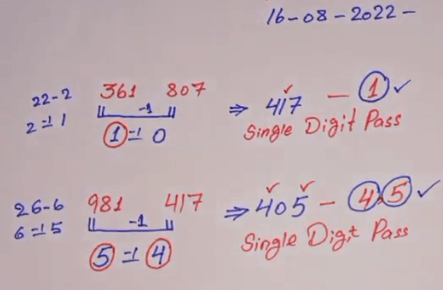 16-08-2022-
22-2 361 807 ⇒ 417 - 1 ✓
-1
2=1 1 1=1 0 Single Digit Pass
26-6 981 417 ⇒ 405 - 4,5 ✓
-1
6=1 5 5=1 4 Single Digit Pass